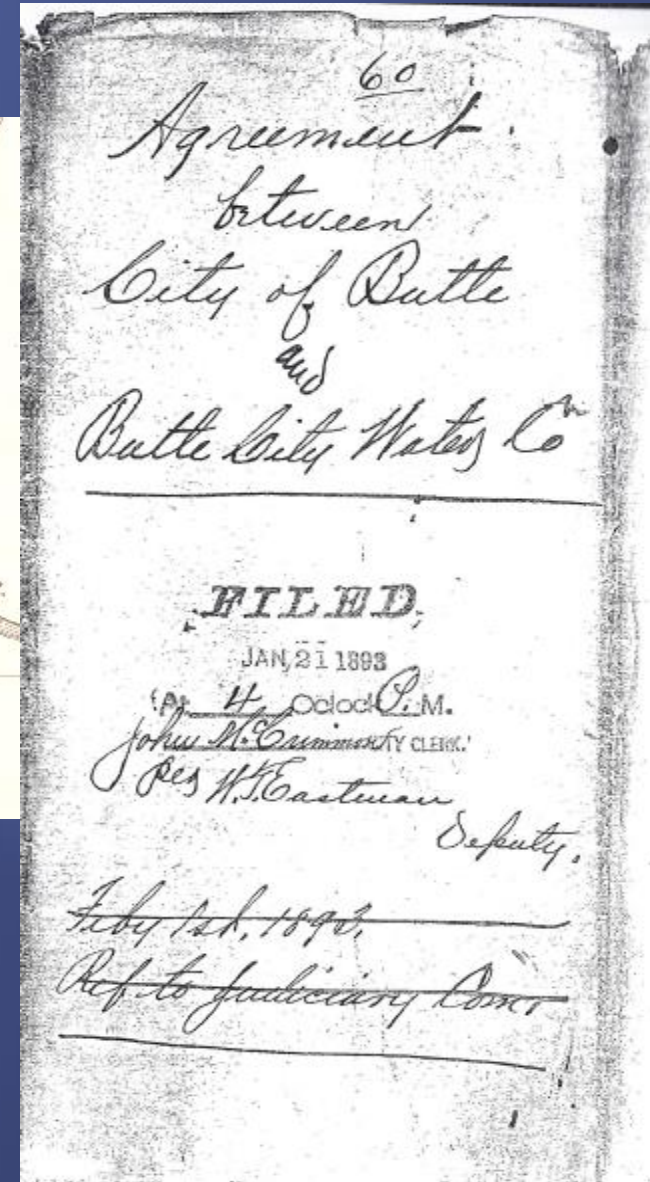 60
Agreement
between
City of Butte
and
Butte City Water Co
FILED,
JAN, 21 1893
At 4 Oclock P. M.
John McCrimmon CITY CLERK.
per W.J. Eastman
Deputy.
Feby 1st, 1893.
Ref to Judiciary Com